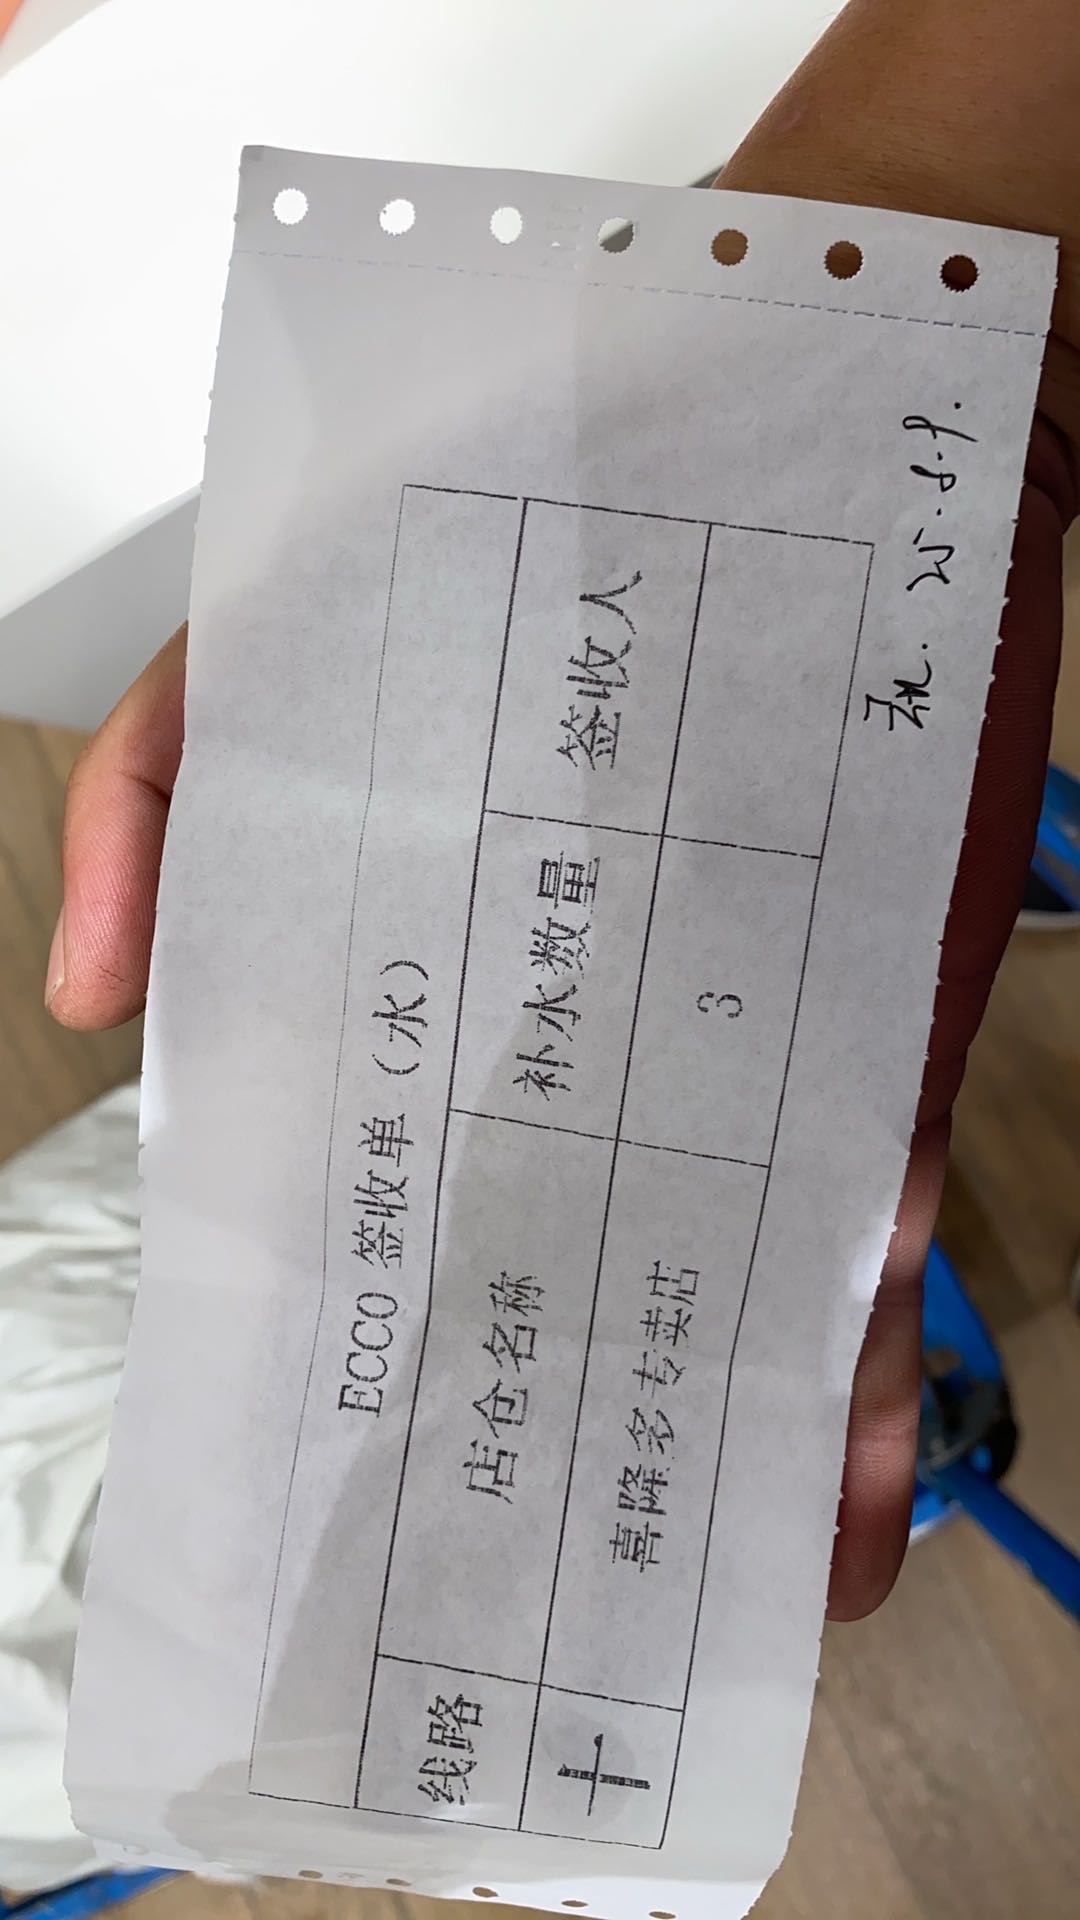 ECCO 签收单（水）
线路 店仓名称 补水数量 签收人
十 喜隆多专卖店 3
25.8.9.